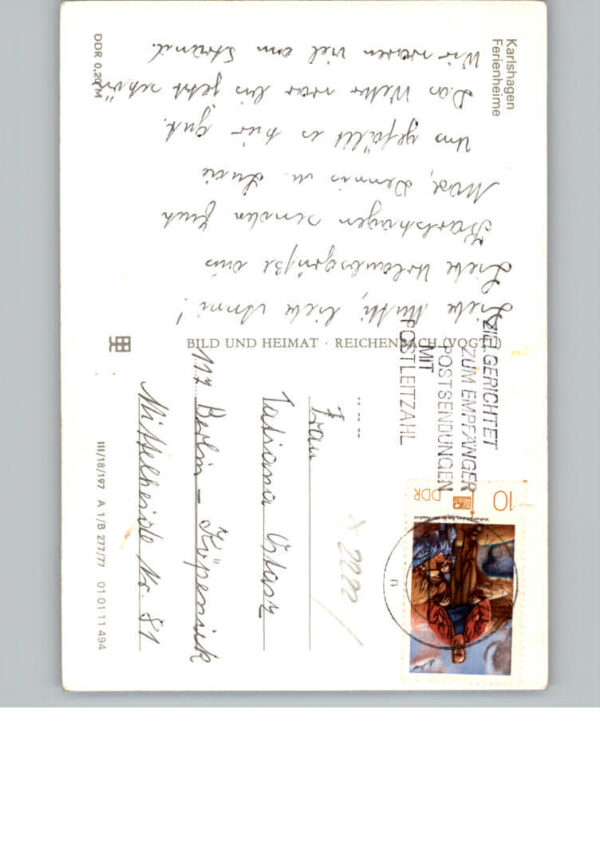 Karlshagen
Ferienheime
Liebe Mutti, liebe Omi!
Liebe Urlaubsgrüße aus
Karlshagen senden Euch
Dennis u.
Uns gefällt es hier gut.
Das Wetter war bis jetzt schön
Wir waren viel am Strand.
DDR 0,20 M
BILD UND HEIMAT · REICHENBACH (VOGTL)
ZIELGERICHTET
ZUM EMPFÄNGER
POSTSENDUNGEN
MIT
POSTLEITZAHL
10
DDR
Frau
Tatiana
117 Berlin - Köpenick
Mittelheide Nr. 81
X 2222 /
III/18/197 A 1/B 277/77 01 01 11 494